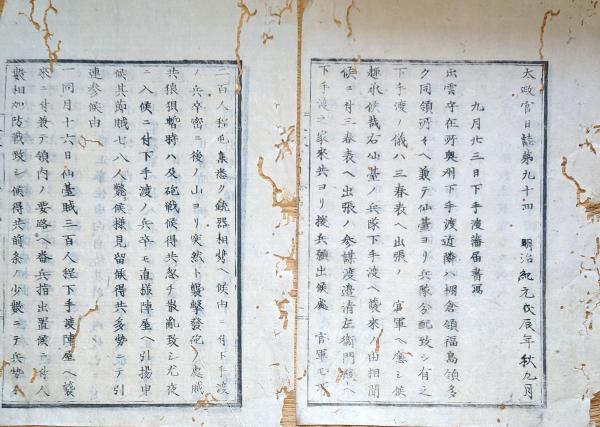 太政官日誌第九十四　明治紀元戊辰年秋九月
九月廿三日下手渡藩届書寫
出雲守在所奥州下手渡近隣ハ棚倉領福島領多
ク同領所々ヘ兼テ仙臺ヨリ兵隊分配致シ有之
下手渡ノ儀ハ三春表ヘ出張ノ　官軍ヘ應シ候
趣承候哉右仙臺ノ兵隊下手渡ヘ襲来ノ由相聞
候ニ付三春表ヘ出張ノ参謀渡邊清左衛門殿ヘ
下手渡之家来共ヨリ援兵願出候處　官軍モ
二百人程屯集悉ク銃器相携ヘ候由ニ付下手渡
ノ兵卒密ニ後ノ山ヨリ突然ト襲撃發砲ノ處賊
共狼狽暫時ハ及砲戦候得共忽チ散亂致シ尤夜
ニ入候ニ付下手渡ノ兵卒モ直様陣屋ヘ引揚申
候其節賊七八人斃候様見留候得共多勢ニテ引
連参候由
一同月十六日仙臺賊三百人程下手渡陣屋ヘ襲
来ニ付兼テ領内ノ要路ヘ番兵指出置候ニ付人
數相加防戦致シ候得共前条ノ少數ニテ兵勢